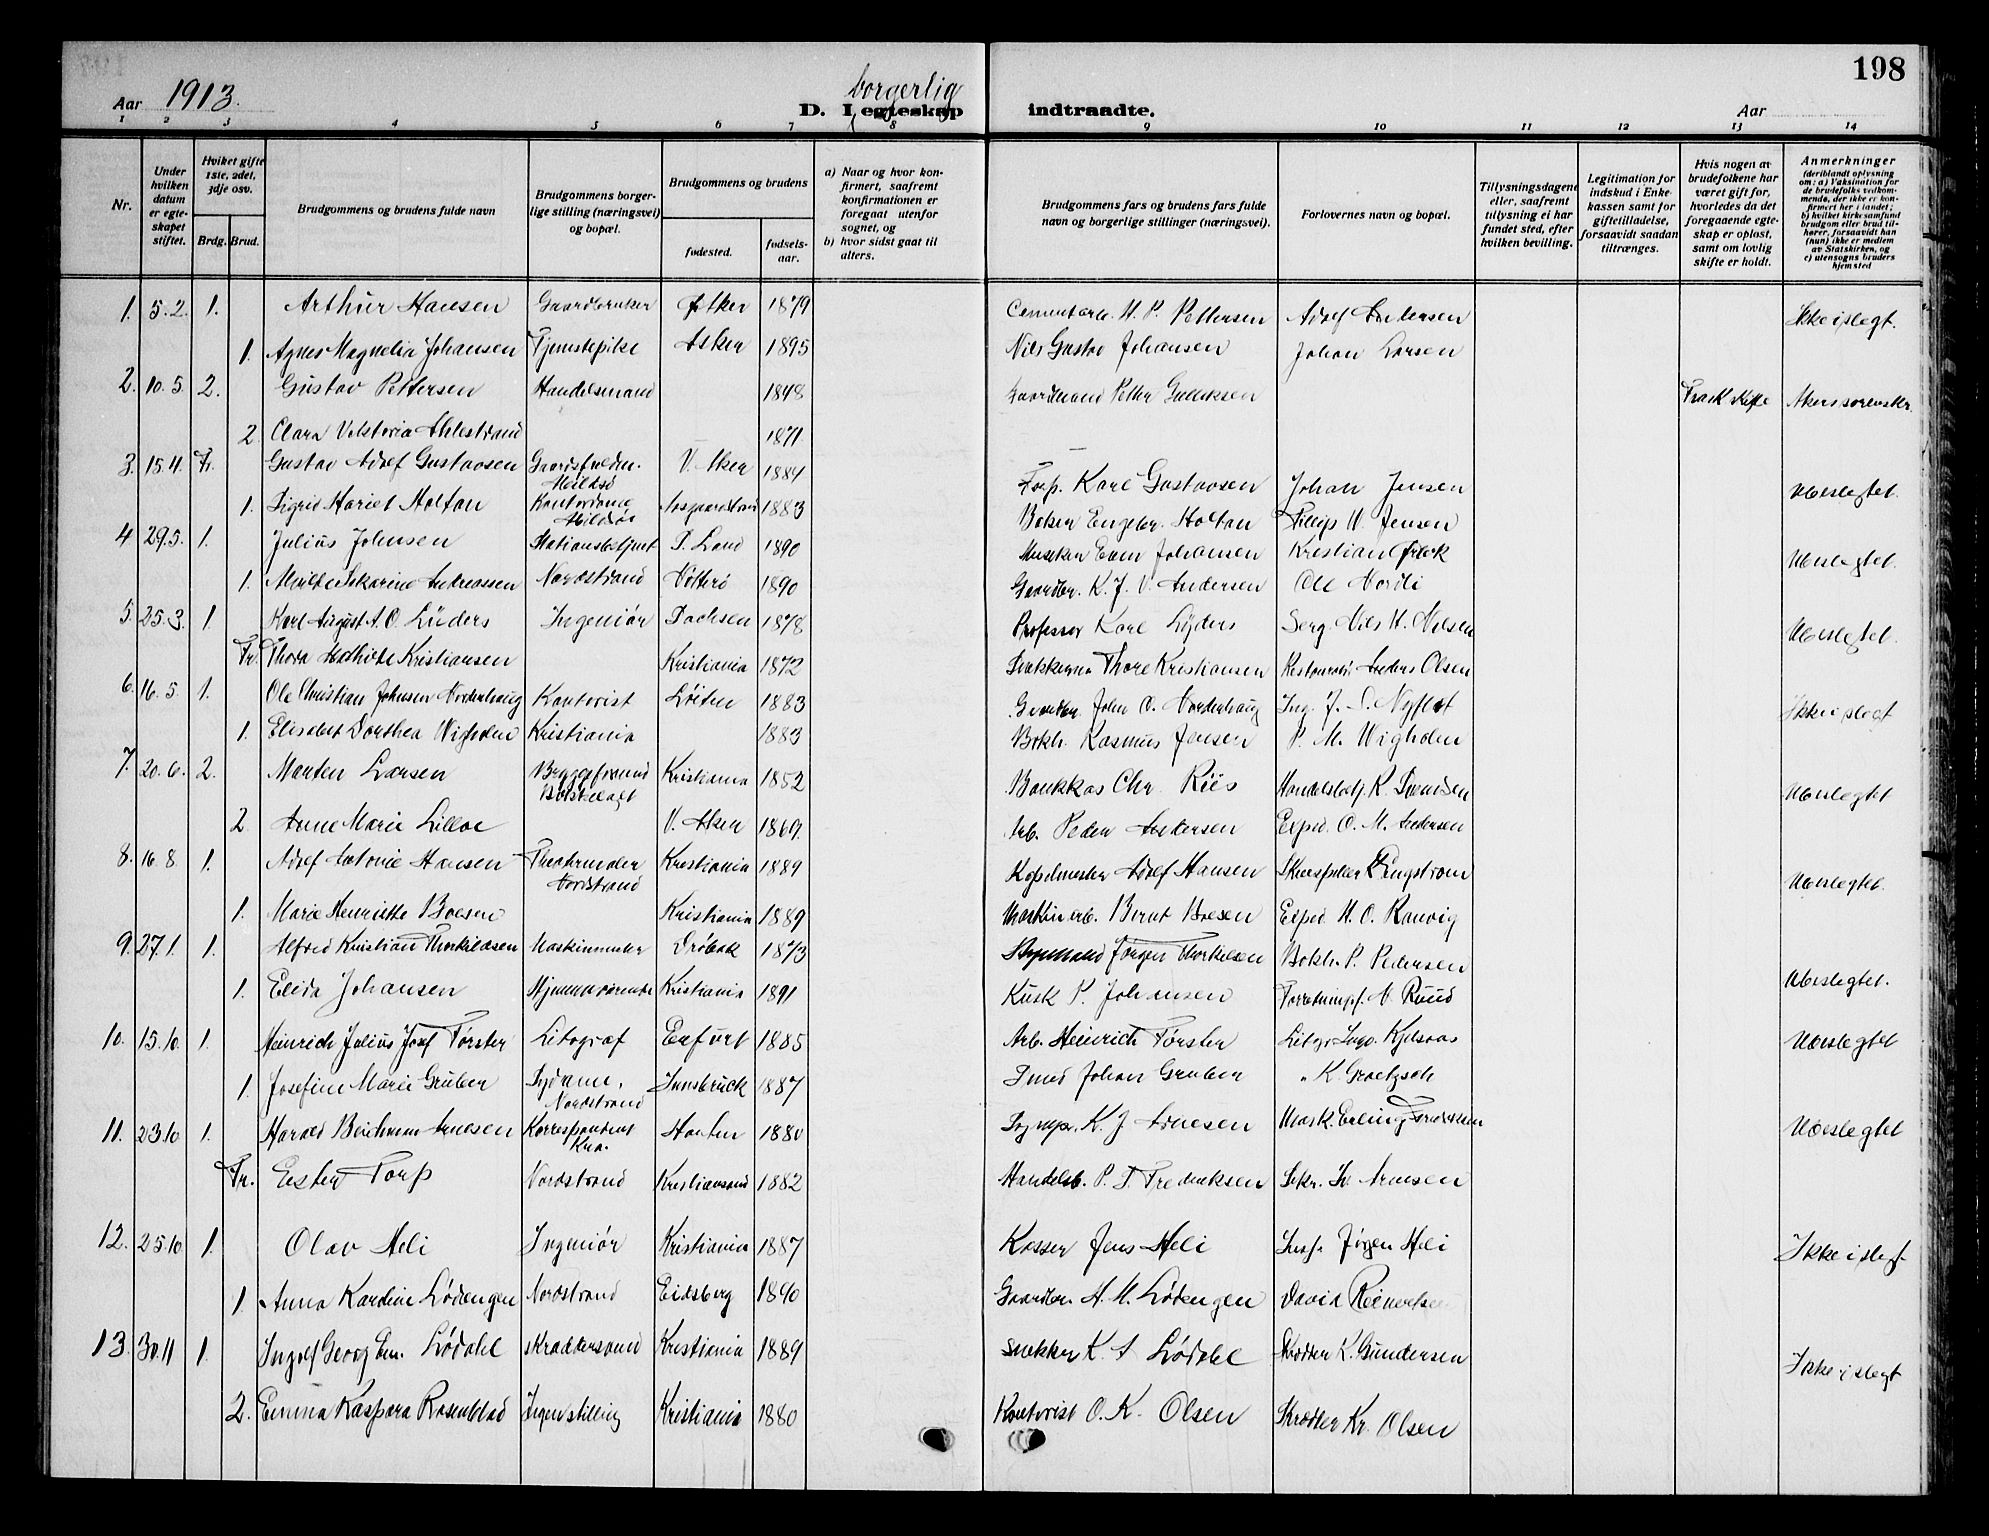 198
Aar 1913.
borgerlig
D. I egteskap indtraadte.
Aar
1 2 3 4 5 6 7 8 9 10 11 12 13 14
Nr.
Under hvilken datum er egteskapet stiftet.
Hvilket gifte 1ste, 2det, 3dje osv.
Brdg. Brud.
Brudgommens og brudens fulde navn
Brudgommens borgerlige stilling (næringsvei) og bopæl.
Brudgommens og brudens
fødested.
fødselsaar.
a) Naar og hvor konfirmert, saafremt konfirmationen er foregaat utenfor sognet, og
b) hvor sidst gaat til alters.
Brudgommens fars og brudens fars fulde navn og borgerlige stillinger (næringsvei).
Forlovernes navn og bopæl.
Tillysningsdagene eller, saafremt tillysning ei har fundet sted, efter hvilken bevilling.
Legitimation for indskud i Enkekassen samt for giftetilladelse, forsaavidt saadan tiltrænges.
Hvis nogen av brudefolkene har været gift før, hvorledes da det foregaaende egteskap er opløst, samt om lovlig skifte er holdt.
Anmerkninger (deriblandt oplysning om: a) Vaksination for de brudefolks vedkommende, der ikke er konfirmert her i landet; b) hvilket kirkesamfund brudgom eller brud tilhører, forsaavidt han (hun) ikke er medlem av Statskirken, og c) utensogns bruders hjemsted
1. 5.2. 1. Arthur Hansen Gaardbruker Asker 1879 Cementarb. H. P. Pettersen Adolf Andersen Ikke i slegt.
1. Agnes Magnelia Johansen Tjenestepike Asker 1895 Nils Gustav Johansen Johan Larsen
2. 10.5. 2. Gustav Pettersen Handelsmand 1848 Gaardmand Petter Gulliksen Akers sorenskr.
2 Clara Viktoria Ahlestrand 1871.
3. 15.4. Fr. Gustav Adolf Gustavsen V. Aker 1884 Karl Gustavsen Johan Jensen Ubeslegtet.
1. Sigrid Mariet Holtan Kontordame 1883 Engebr. Holtan Filip W. Jensen
4 29.5. 1. Julius Johnsen Stationsbetjent S. Land 1890 Johansen Kristian Ubeslegtet.
1. Andreassen Nordstrand Nøtterø 1890 Gaardbr. K. J. V. Andersen Ole Nordli
5. 25.3. 1. Karl August A. O. Lüders Ingeniør Sachsen 1878 Professor Karl Lüders Serg. Nils H. Nilsen Ubeslegtet.
Fr. Thora Mathilde Kristiansen Kristiania 1872 Thore Kristiansen Anders Olsen
6. 16.5. 1. Ole Christian Johnsen Nordenhaug Kontorist Løiten 1883 Gaardbr. John O. Nordenhaug Ing. J. S. Nyflot Ikke i slegt
1. Elisabet Dorthea Wighden Kristiania 1883 Bokh. Rasmus Jensen P. M. Wighden
7. 20.6. 2. Morten Larsen Kristiania 1852 Chr. Riis Ubeslegtet
2 Anne Marie Lilloe V. Aker 1869. Arb. Peder Andersen Exped. O. M. Andersen
8. 16.8. 1. Adolf Antonie Hansen Theatermaler Nordstrand Kristiania 1889 Kapelmester Adolf Hansen Skuespiller Engstrøm Ubeslegtet.
1. Marie Henriette Boesen Kristiania 1889 Maskinarb. Bernt Boesen Exped. H. O. Ranvig
9. 27.1. 1. Alfred Kristian Thorkildsen Maskinmester Drøbak 1873 Jørgen Thorkilsen Bokh. P. Pedersen Ubeslegtet.
1. Elida Johansen Hjemmeværende Kristiania 1891 Kusk P. Johansen N. Ruud
10. 15.10. 1. Heinrich Julius Josef Förster Litograf Erfurt 1885 Arb. Heinrich Förster Kjelsaas Ubeslegtet
1. Josefine Marie Gruber Sydame, Nordstrand Innsbruck 1887 Smed Johan Gruber " K. Graetzsch
11. 23.10 1. Harald Beichmann Arnesen Korrespondent Kra. Horten 1880 K. J. Arnesen Mask. Erling Fredriksen Ubeslegtet
Fr. Ester Torp Nordstrand Kristiansund 1882 Handelsb. P. T. Fredriksen Sekr. Arnesen
12. 25.10 1. Olav Heli Ingeniør Kristiania 1887 Kasser Jens Heli Jørgen Heli Ikke i slegt
1. Anna Kardine Lødengen Nordstrand Eidsberg 1890 Gaardbr. A. M. Lødengen David Reinertsen
13. 30.11 1. Ingolf Georg Em. Lødahl Skræddersvend Kristiania 1889 Snekker K. A Lødahl Skrædder K. Gundersen Ikke i slegt
2. Emma Kaspara Rosenblad Ingen stilling Kristiania 1880 Kontorist O. K. Olsen Skrædder Kr. Olsen